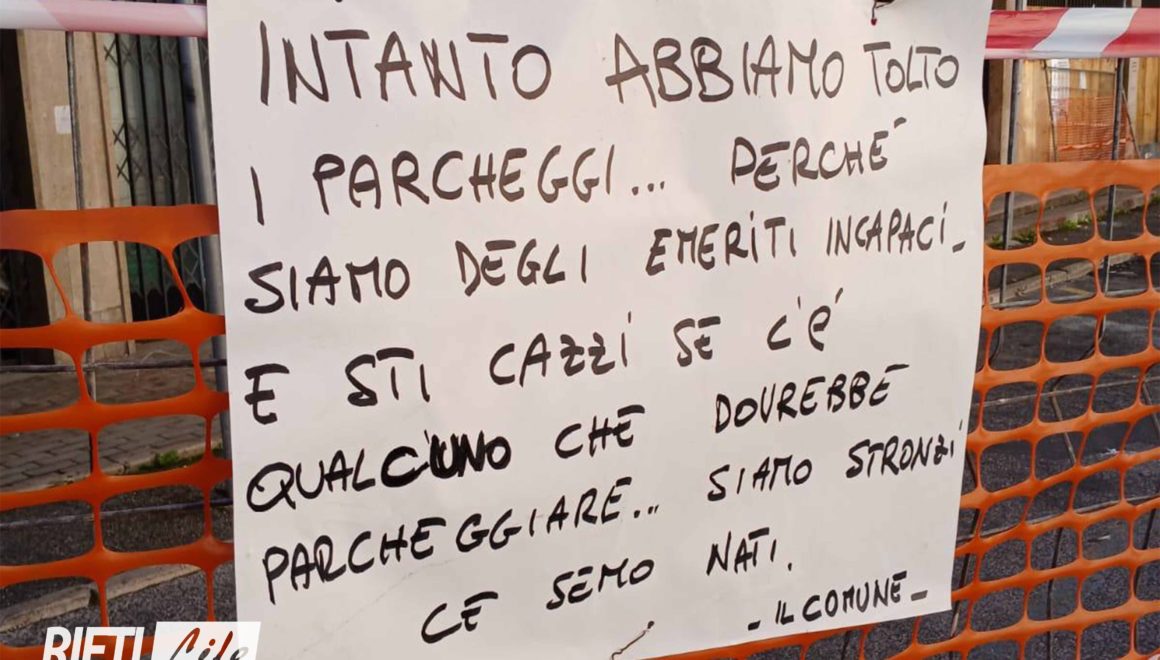 INTANTO ABBIAMO TOLTO
I PARCHEGGI... PERCHÉ
SIAMO DEGLI EMERITI INCAPACI_
E STI CAZZI SE C'É
QUALCUNO CHE DOVREBBE
PARCHEGGIARE... SIAMO STRONZI
CE SEMO NATI.
- IL COMUNE -
RIETI Life